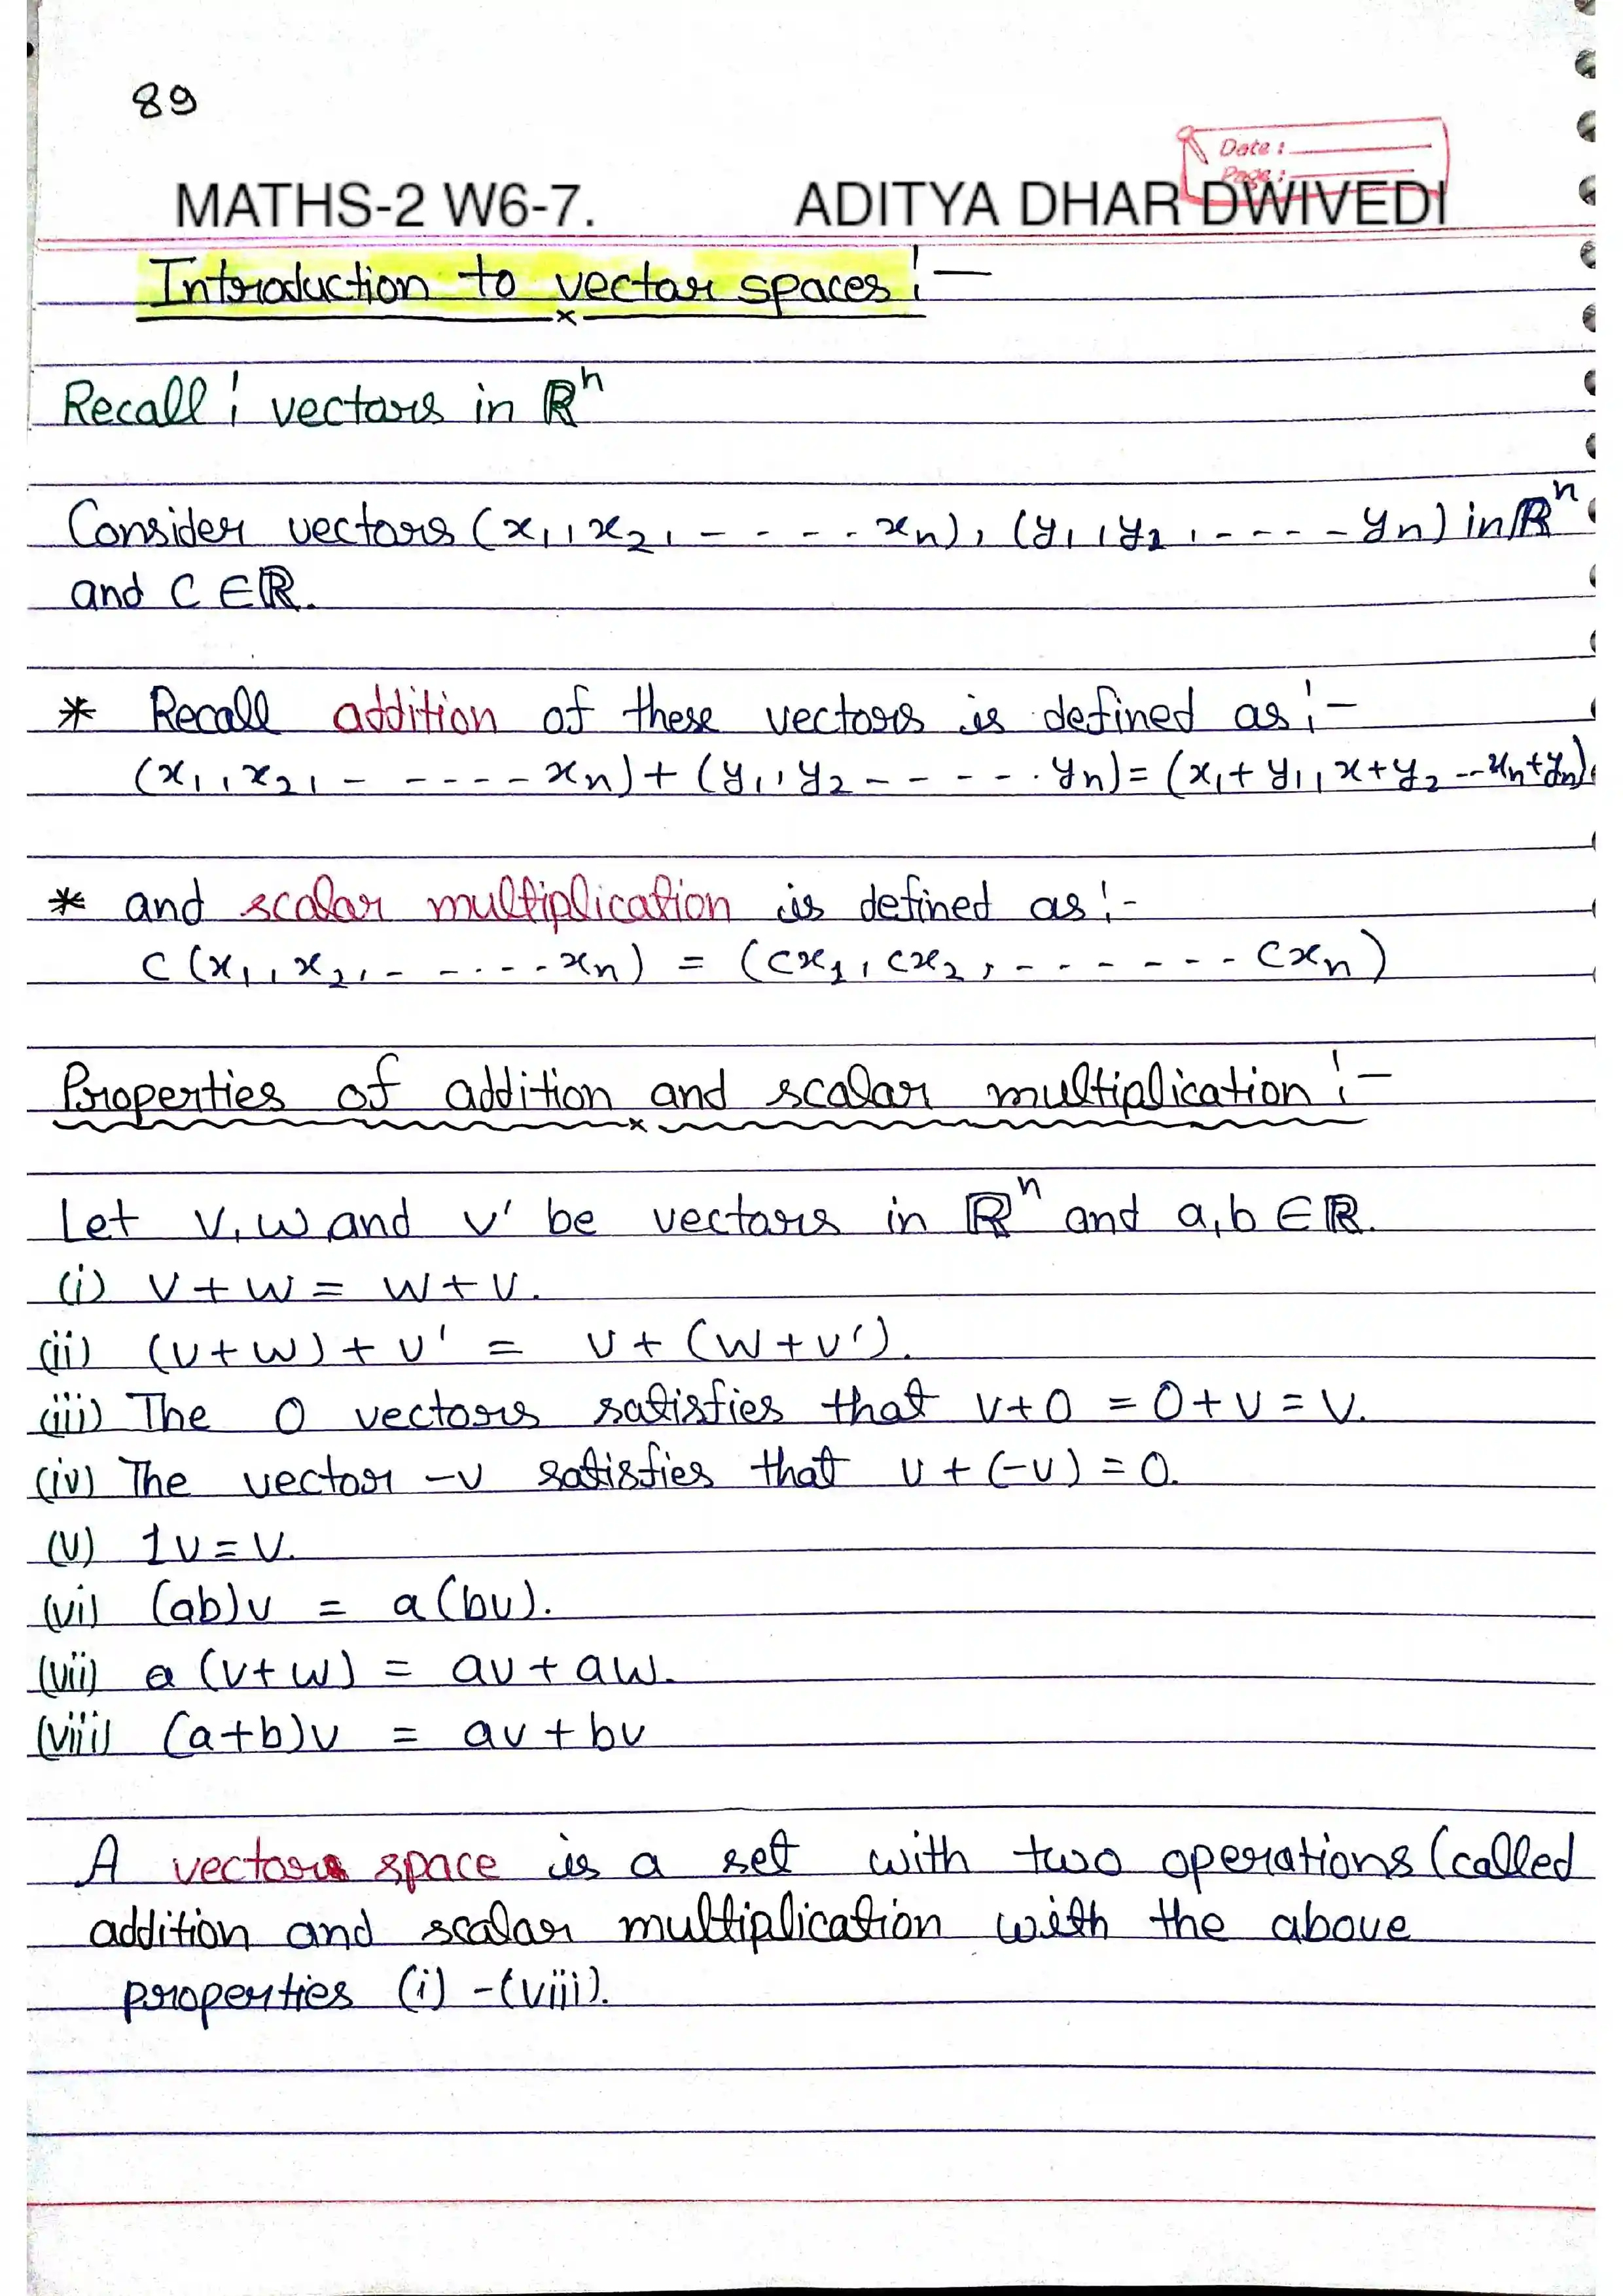 89
Date :
Page :
MATHS-2 W6-7. ADITYA DHAR DWIVEDI
Introduction to vector spaces :-
Recall : vectors in ℝⁿ
Consider vectors (x₁, x₂, - - - - - xₙ), (y₁, y₂, - - - - yₙ) in ℝⁿ
and C ∈ ℝ.
* Recall addition of these vectors is defined as :-
(x₁, x₂, - - - - - xₙ) + (y₁, y₂ - - - - - yₙ) = (x₁ + y₁, x + y₂ --- xₙ + yₙ).
* and scalar multiplication is defined as :-
C (x₁, x₂, - - - - - xₙ) = (cx₁, cx₂, - - - - - - cxₙ)
Properties of addition and scalar multiplication :-
Let v, w and v' be vectors in ℝⁿ and a, b ∈ ℝ.
(i) v + w = w + v.
(ii) (v + w) + v' = v + (w + v').
(iii) The 0 vectors satisfies that v + 0 = 0 + v = v.
(iv) The vector -v satisfies that v + (-v) = 0.
(v) 1v = v.
(vi) (ab)v = a(bv).
(vii) a (v + w) = av + aw.
(viii) (a+b)v = av + bv
A vectors space is a set with two operations (called
addition and scalar multiplication with the above
properties (i) - (viii).